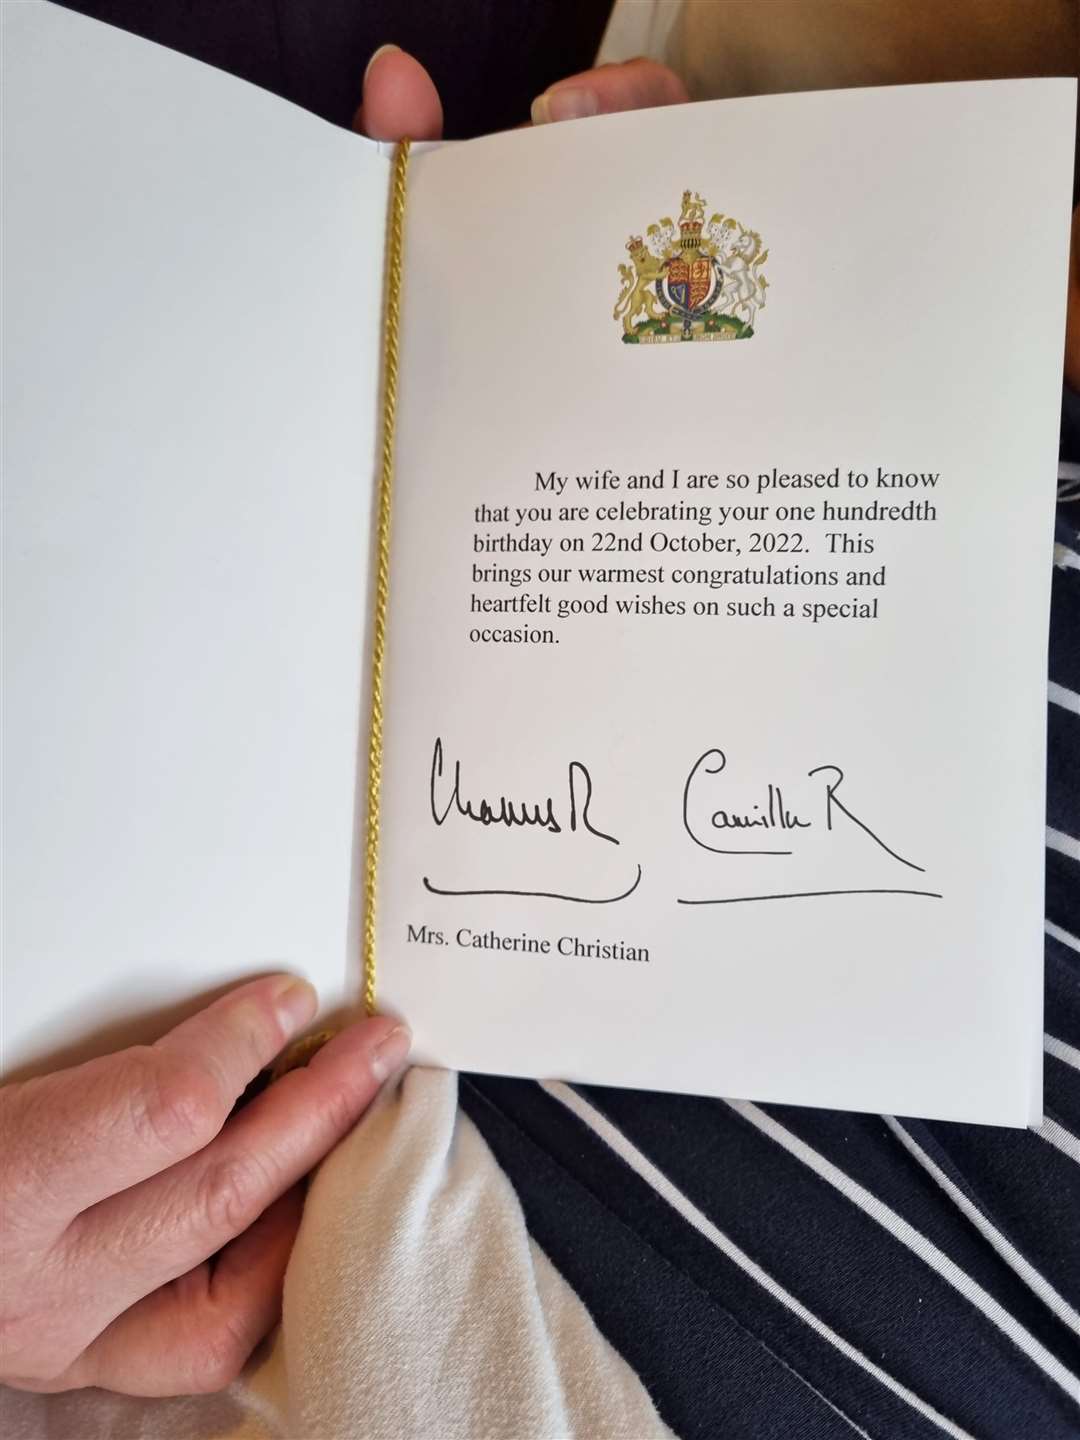 My wife and I are so pleased to know
that you are celebrating your one hundredth
birthday on 22nd October, 2022. This
brings our warmest congratulations and
heartfelt good wishes on such a special
occasion.
Charles R Camilla R
Mrs. Catherine Christian